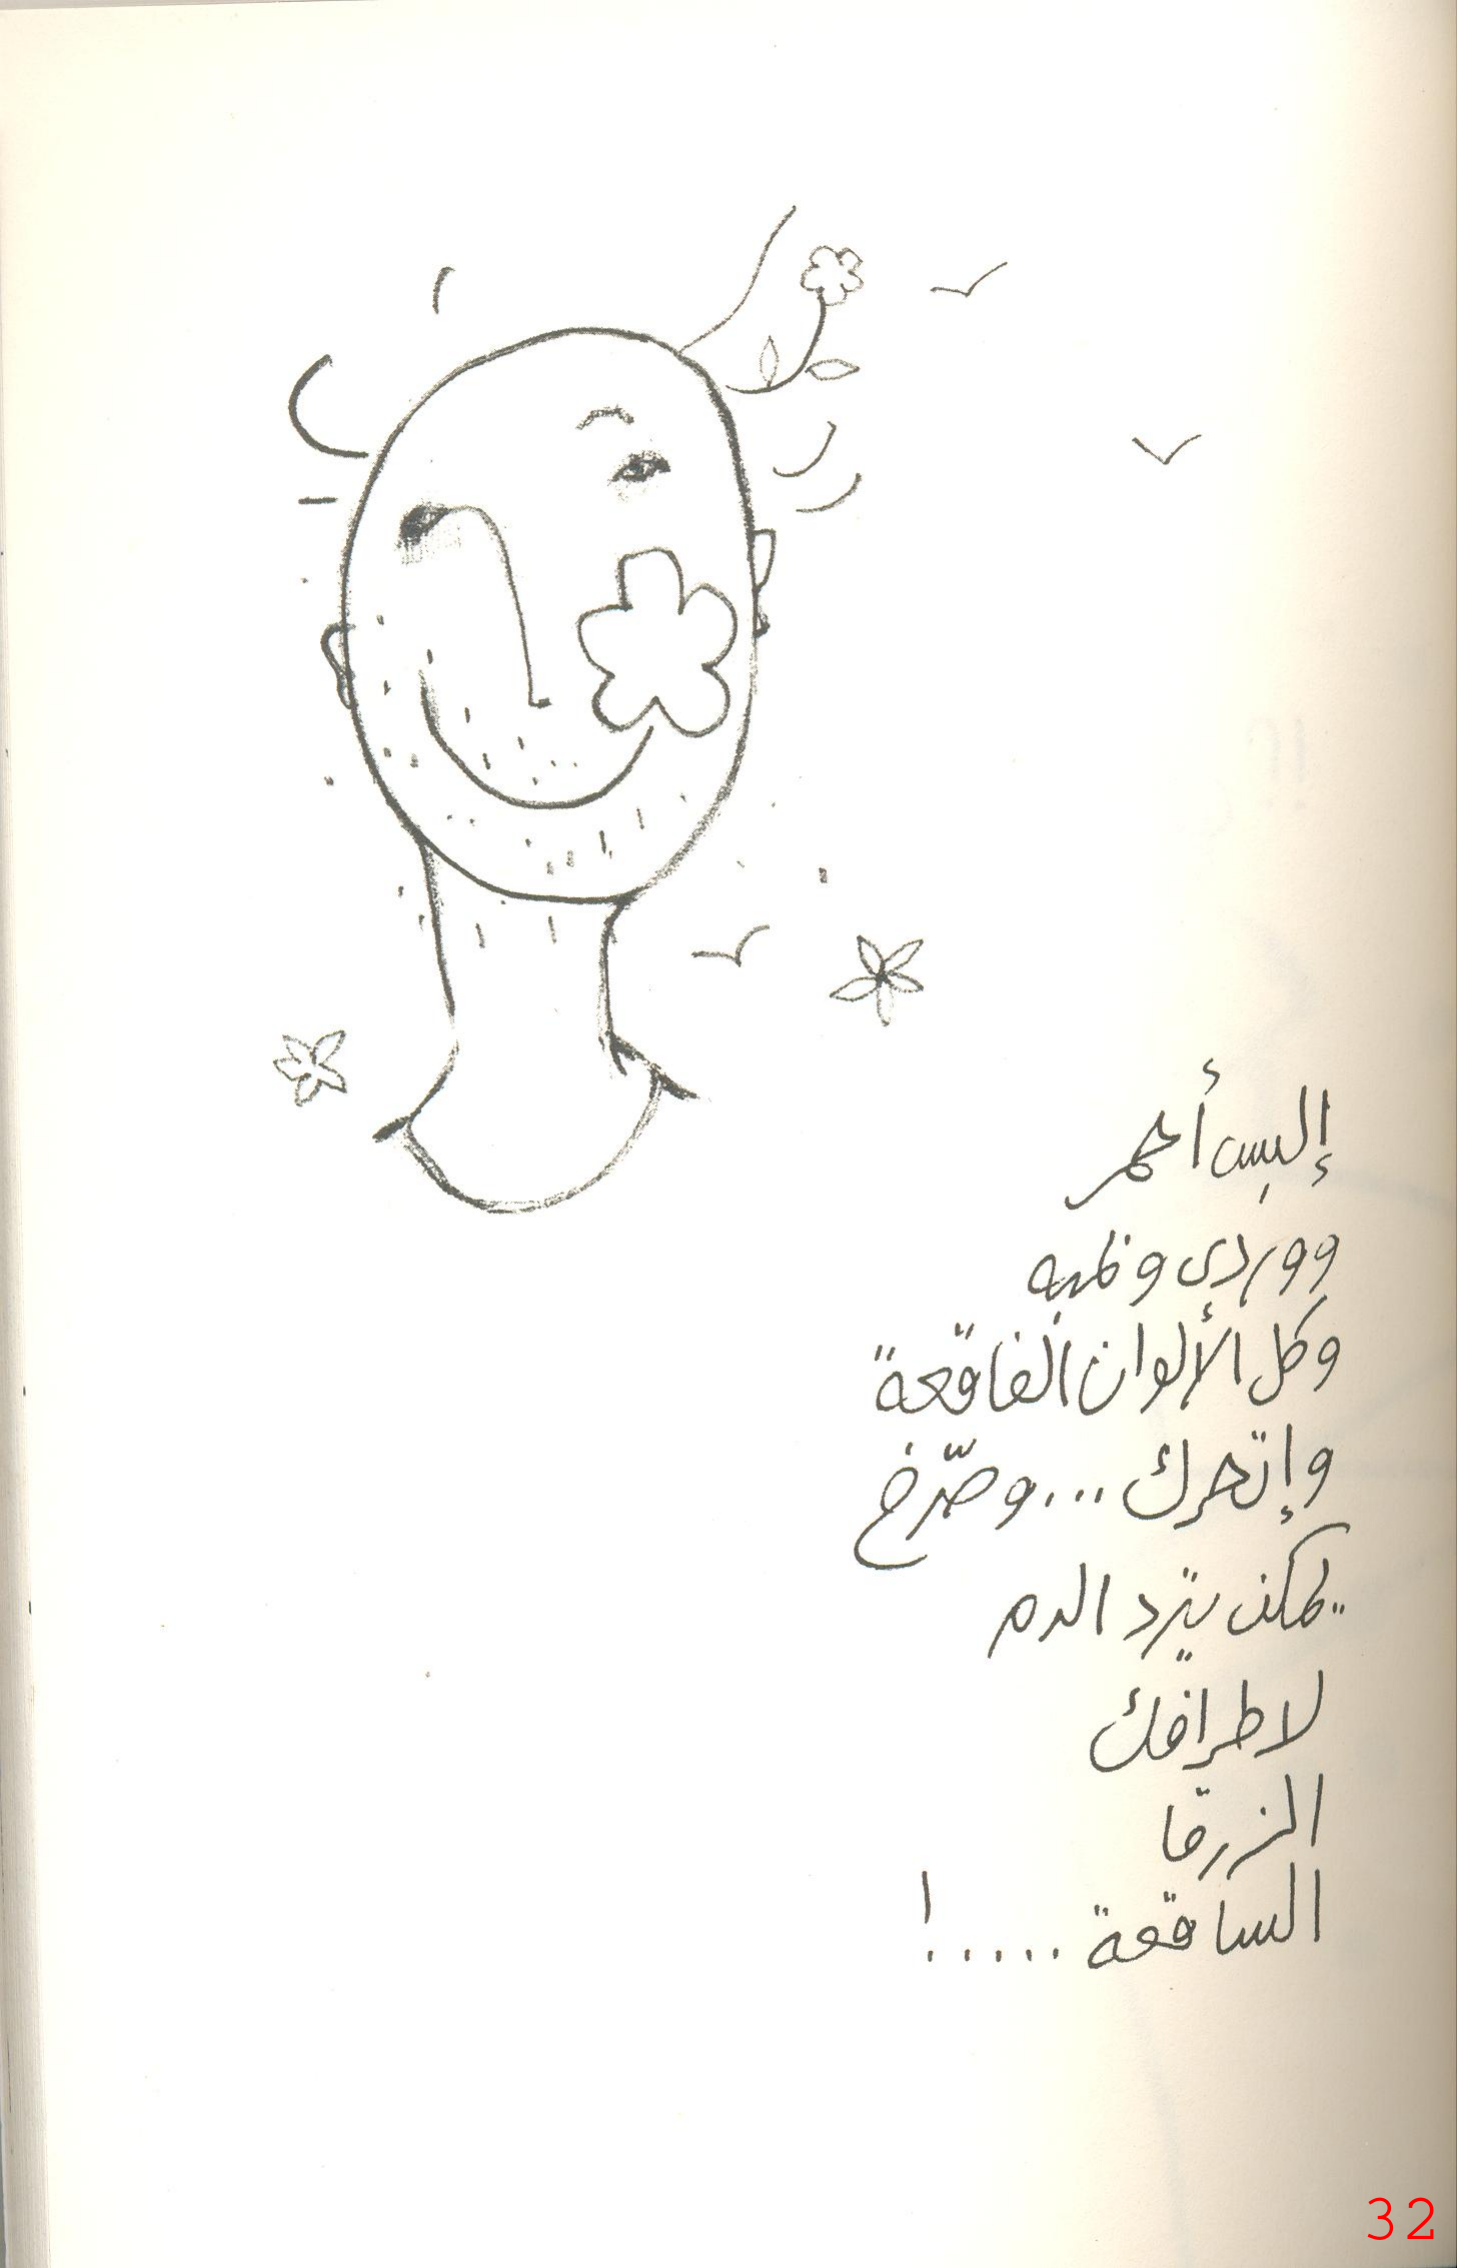 إلبس أحمر
ووردي وبمبه
وكل الألوان الفاقعة
وإتحرك ... وصرّخ
يمكن يترد الدم
لاطرافك
الزرقا
الساقعة .....!
32